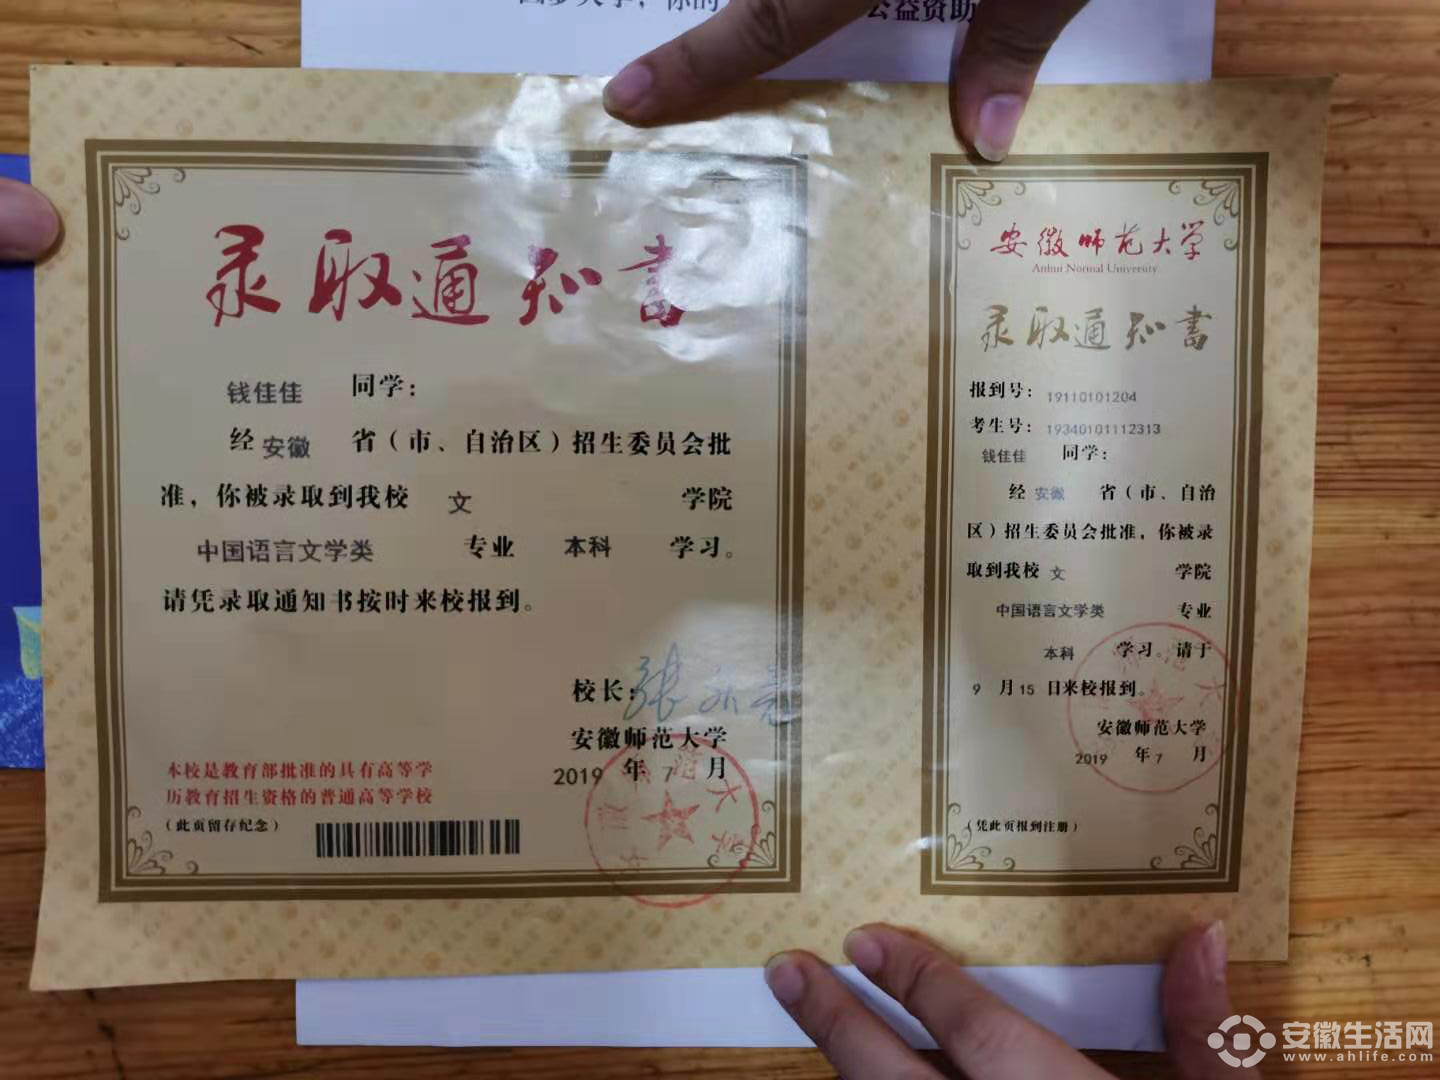 公益资助
录取通知书
钱佳佳 同学：
经 安徽 省（市、自治区）招生委员会批
准，你被录取到我校 文 学院
中国语言文学类 专业 本科 学习。
请凭录取通知书按时来校报到。
校长：
安徽师范大学
2019 年 7 月
本校是教育部批准的具有高等学
历教育招生资格的普通高等学校
（此页留存纪念）
安徽师范大学
Anhui Normal University
录取通知书
报到号： 19110101204
考生号： 19340101112313
钱佳佳 同学：
经 安徽 省（市、自治
区）招生委员会批准，你被录
取到我校 文 学院
中国语言文学类 专业
本科 学习。请于
9 月 15 日来校报到。
安徽师范大学
2019 年 7 月
（凭此页报到注册）
安徽生活网
www.ahlife.com